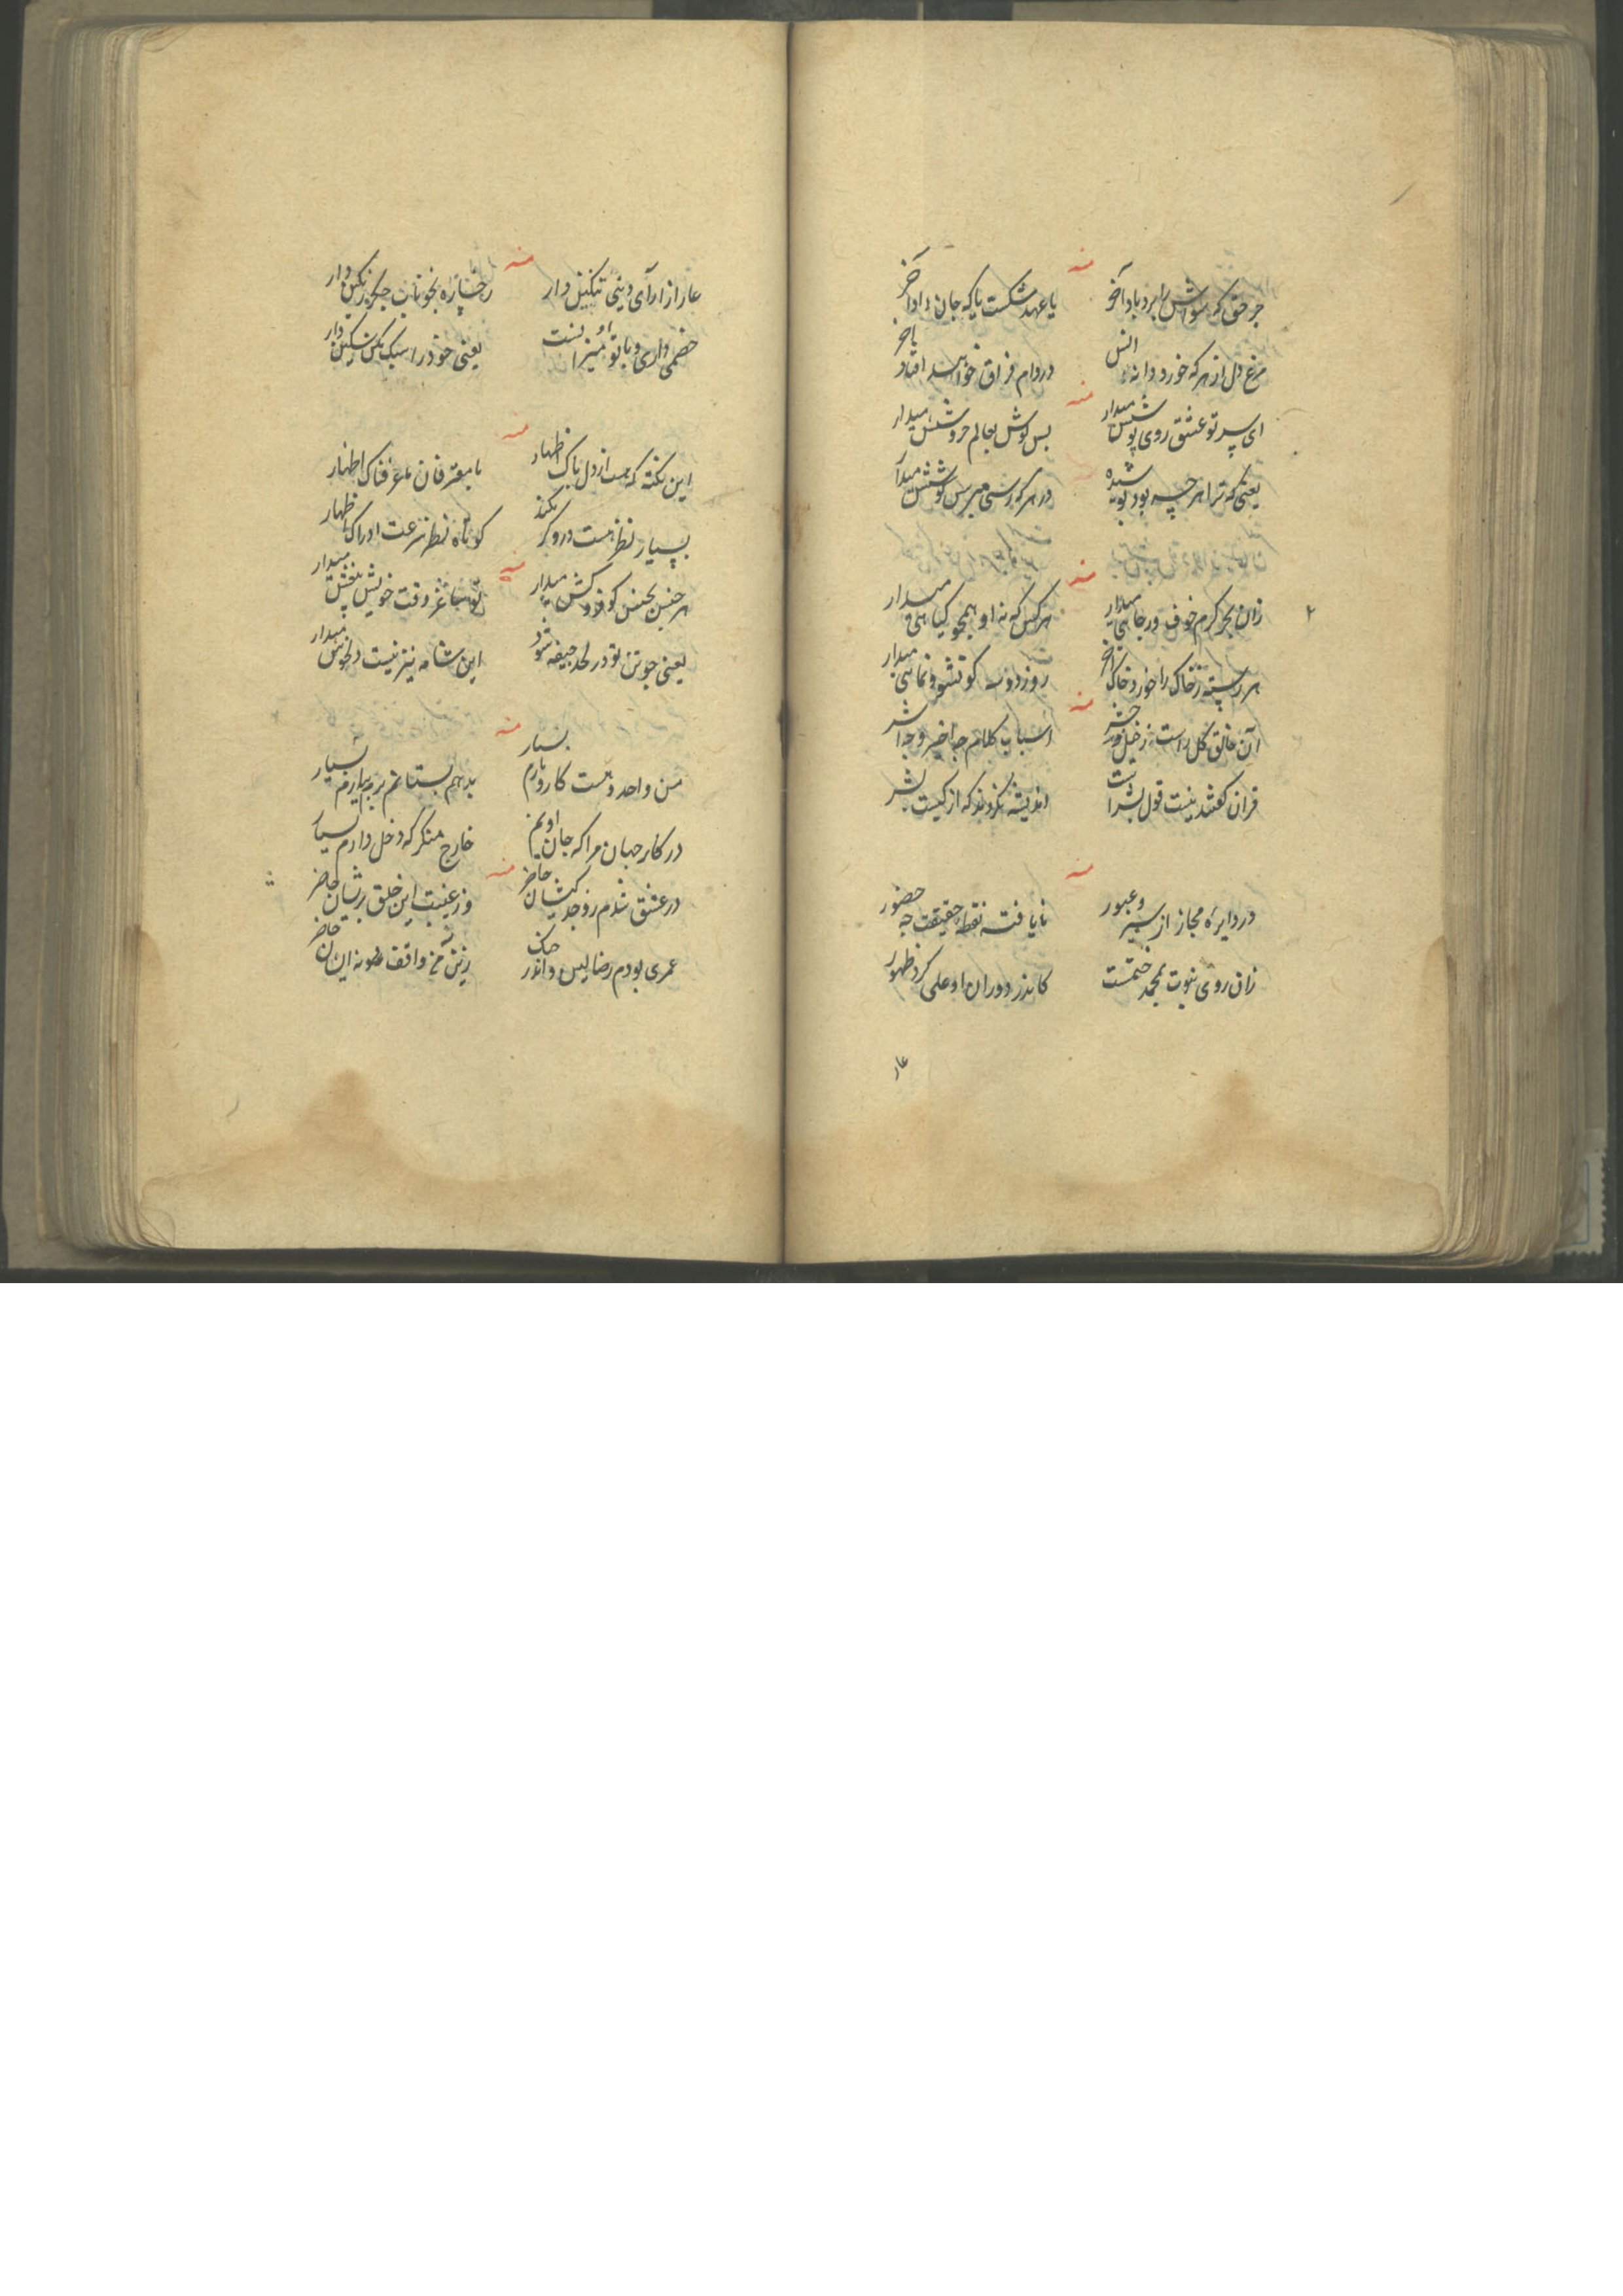 منه
جز حق که سواش را برد باد آخر
یا عهد شکست یا که جان داد آخر
مرغ دل از هر که خورد دانه انس
در دام فراق خواهد افتاد آخر
منه
ای سر تو عشق روی پوشش میدار
بس گوش بعالم خروشش میدار
یعنی که ترا هر چه بود بوته شده
در هر که رسی میرس گوشش میدار
منه
زان بحر کرم خوف و رجایی میدار
هر کس که نه او همچو گیاهی میدار
هر رسته ز خاک را خورد خاک آخر
روز دو سه گو نشو و نمایی میدار
منه
آن خالق کل راست ز خیل و حشر
اسباب کلام چه اخیر و چه اشر
قران گفتند نیست قول بشر است
اندیشه نکردند که از کیست بشر
منه
در دایره مجاز از سیر و عبور
نایافته نقطه حقیقت چه حضور
زان روی نبوت بمحمد ختمست
کاندر دوران او علی کرد ظهور
عار
عار از ارای دینی تنگین دار
رخساره بخوناب جگر رنگین دار
خصمی داری و با تو میزان او نست
یعنی خود را سبک مکن سنگین دار
منه
این نکته که هست از دل پاک اظهار
با معترفان ما عرفناک اظهار
بسیار نظر هست درو گر نکند
کوتاه نظر سرعت ادراک اظهار
منه
هر جنس بجنس گو فروکش میدار
تو ساغر وقت خویش بیغش میدار
یعنی چو تن تو در لحد جیفه شود
این شامه نیز نیست دلخوش میدار
منه
من واحد و هست کار و بارم بسیار
بدهم بستانم برم بیارم بسیار
در کار جهان مرا که جان اویم
خارج منگر که دخل دارم بسیار
منه
در عشق شدم ز وجد کیشان حاضر
وز غیبت این خلق پریشان حاضر
عمری بودم رضا لیس واندر